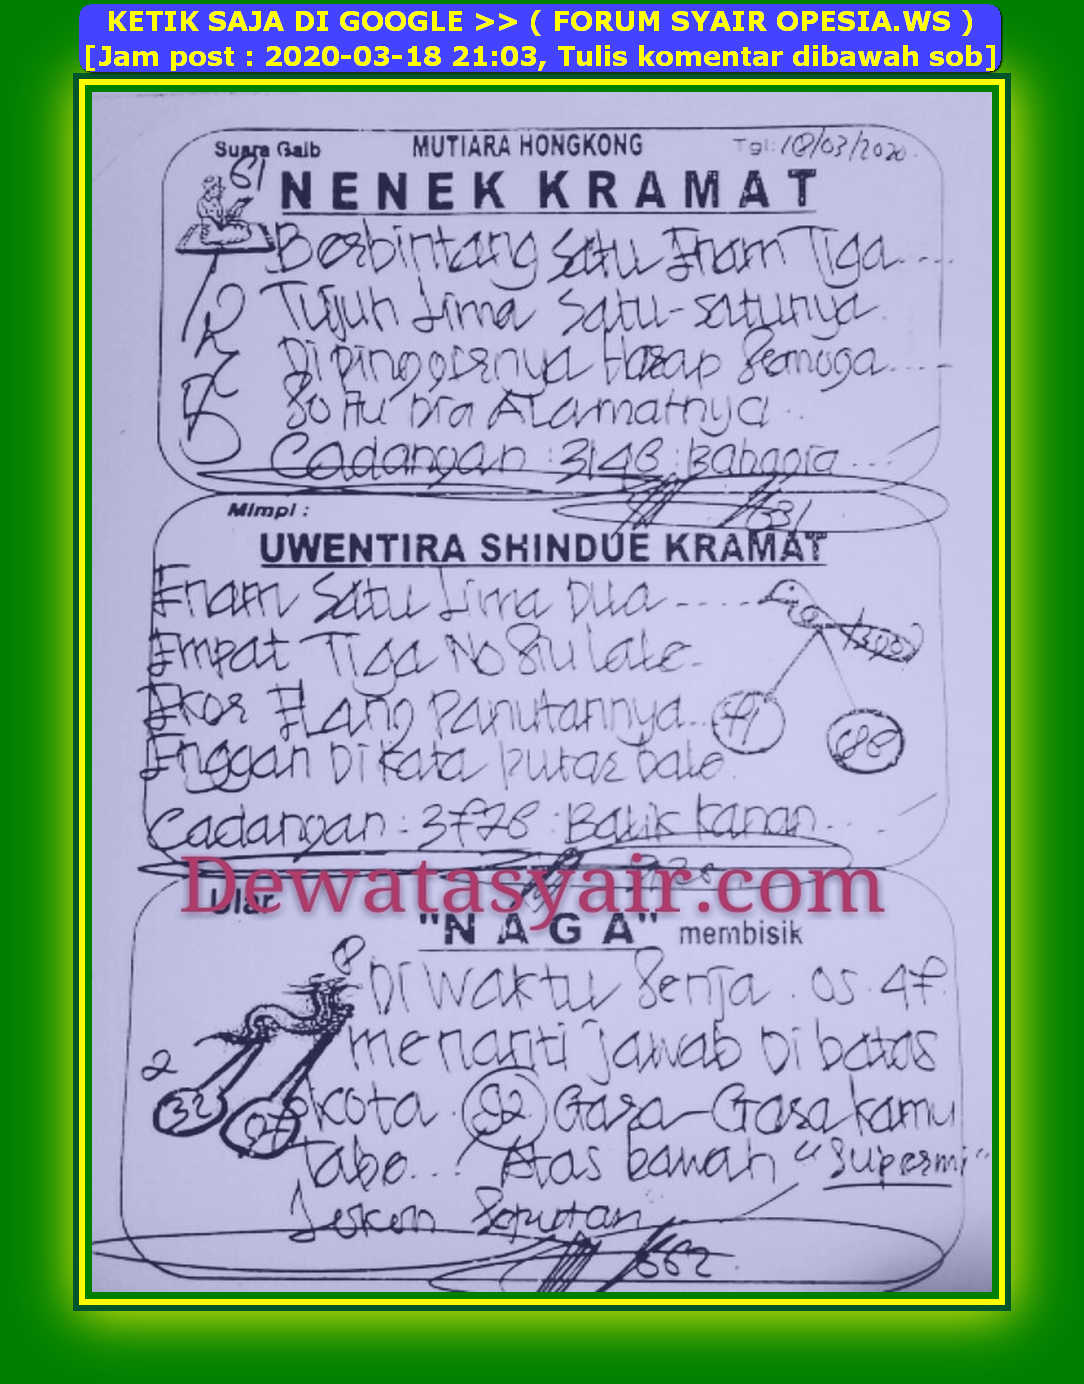 KETIK SAJA DI GOOGLE >> ( FORUM SYAIR OPESIA.WS )
[Jam post : 2020-03-18 21:03, Tulis komentar dibawah sob]
Suara Gaib MUTIARA HONGKONG Tgl: 18/03/2020
61
NENEK KRAMAT
Berbintang Satu Enam Tiga....
Tujuh Lima Satu-satunya.
Dipinggirnya Harap Semoga....
Alamatnya..
Cadangan : 3148 : Bahagia...
631
Mimpi :
UWENTIRA SHINDUE KRAMAT
Enam Satu Lima Dua .....
Empat Tiga No
Ekor Elang Panutannya...
Enggan Dikata putar bale.
Cadangan : 3778 : Balik Kanan...
Dewatasyair.com
Ular
"NAGA" membisik
8
Di waktu Senja . OS. 47.
menanti jawab Di batas
2
32
97
Kota . 92 Gara-Gara kamu
Tabo... Atas bawah "Supermi"
Seputan
662